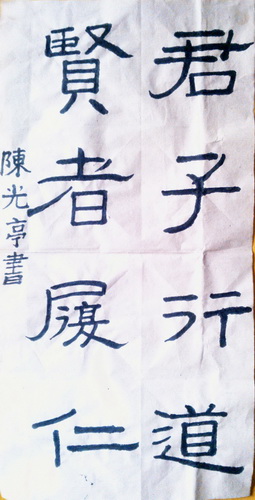 君子行道
賢者履仁
陳光亭書